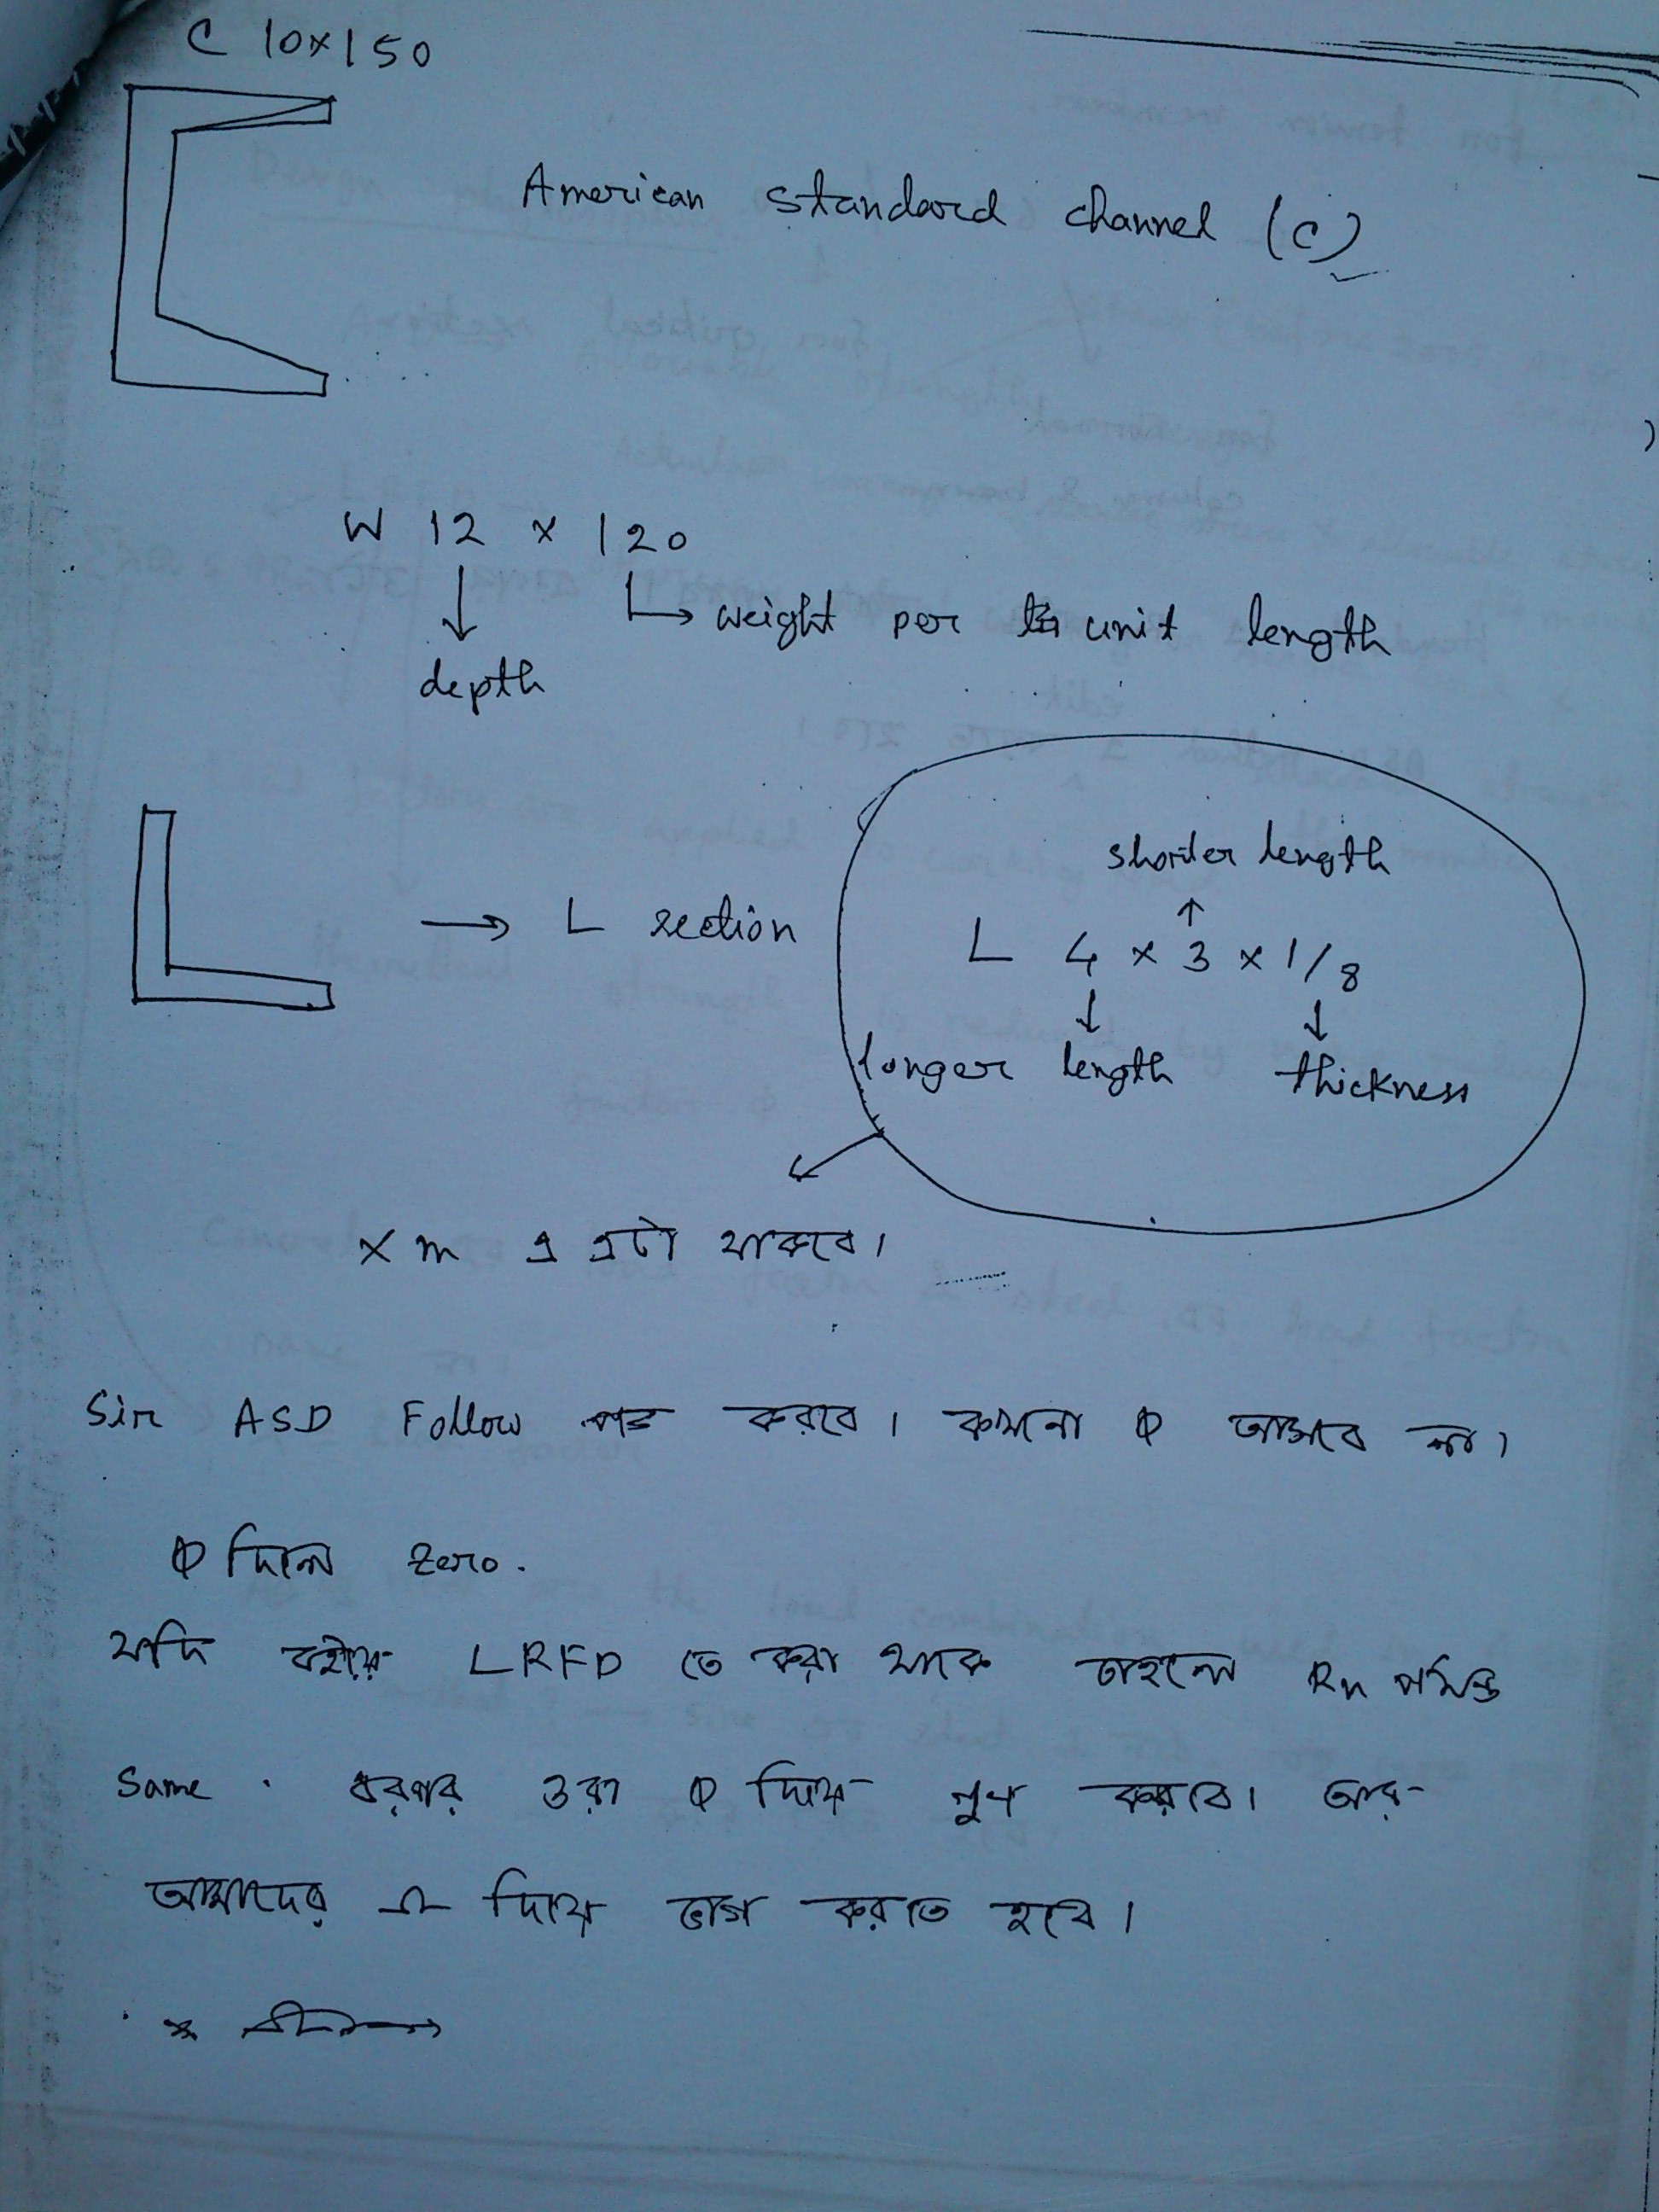 C 10x150
American standard channel (C)
W 12 x 120
weight per unit length
depth
shorter length
→ L section
L 4 x 3 x 1/8
longer length
thickness
X m এ এটা থাকবে।
Sir ASD Follow করবে। কখনো Φ আসবে না।
Φ দিলে zero.
যদি বইয়ে LRFD তে করা থাকে তাহলে Rn পর্যন্ত
same. এরপর ওরা Φ দিয়ে গুণ করবে। আর
আমাদের Ω দিয়ে ভাগ করতে হবে।